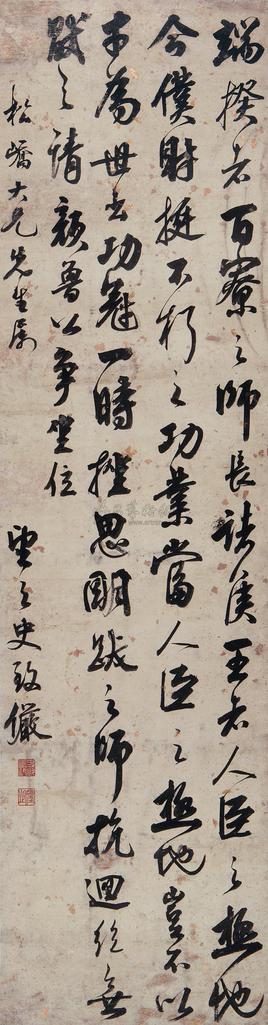 端揆者百寮之師長諸侯王者人臣之極地
今僕射挺不朽之功業當人臣之極地豈不以
才為世出功冠一時挫思明跋之師抗迴紇無
厭之請顏魯公爭坐位
松嶠大兄先生屬
史致儼